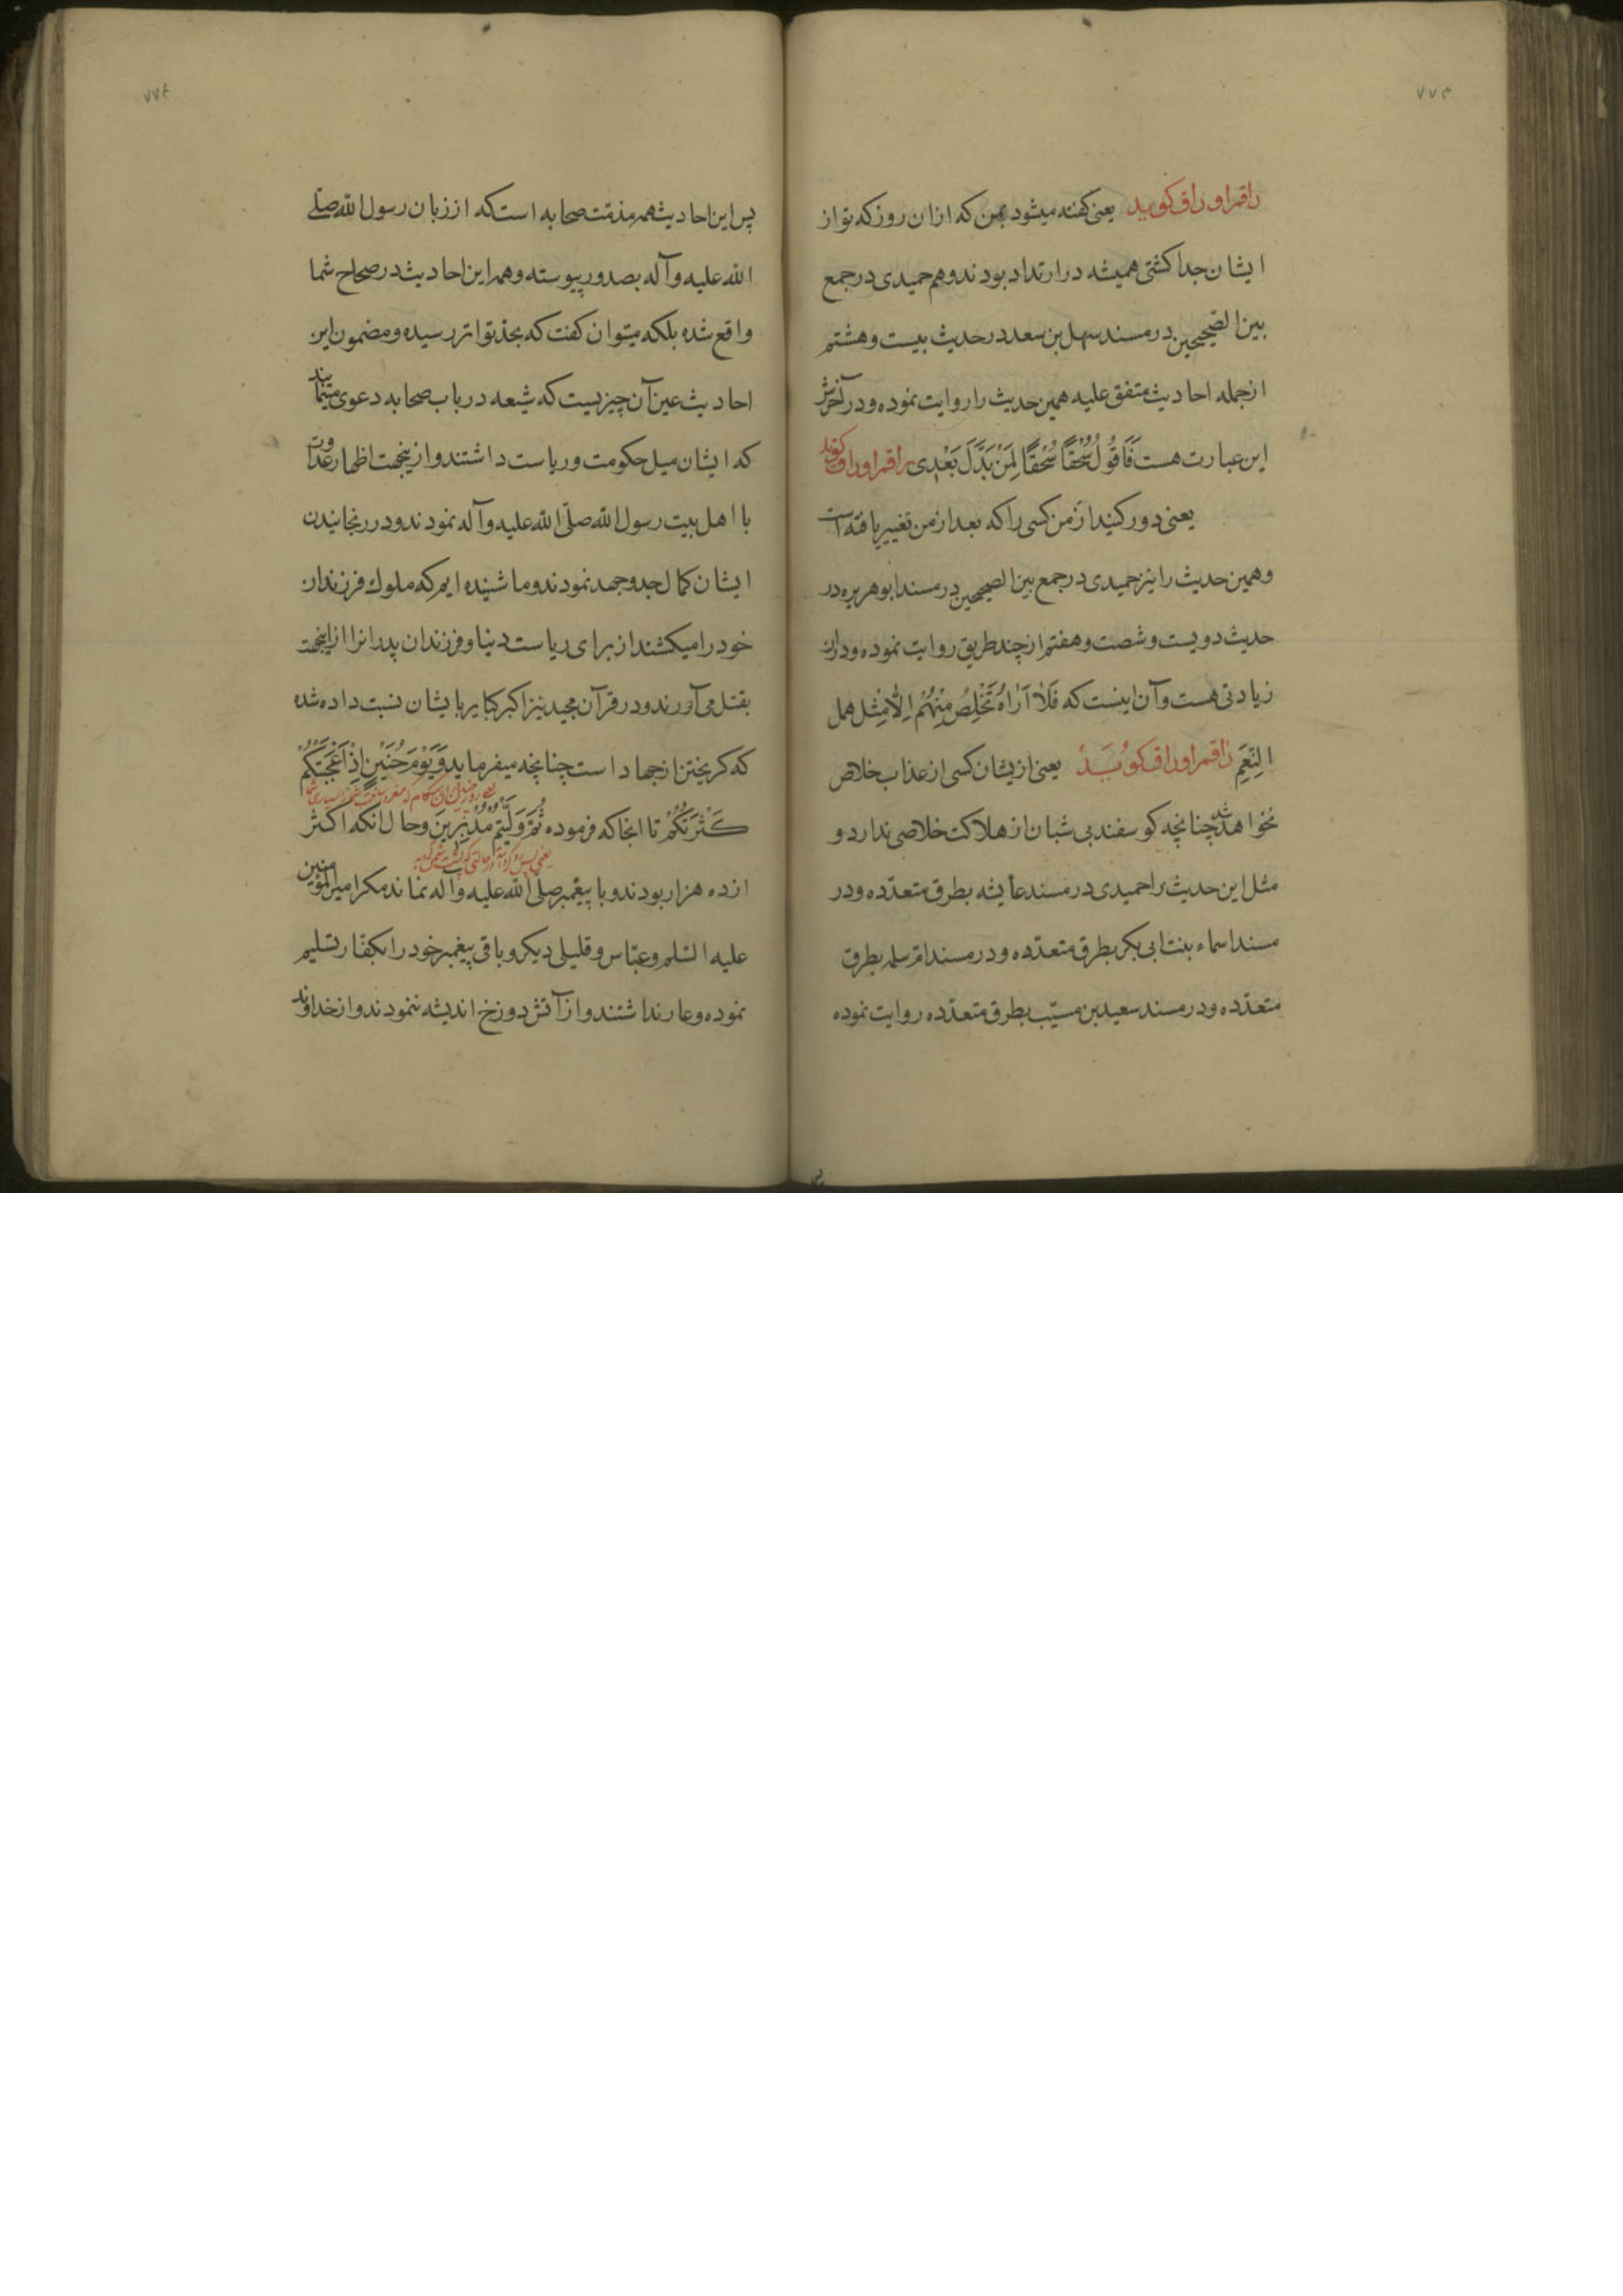 ۷۷۳
راقم اوراق کوید یعنی کفته میشود بمن که ازان روز که تو از
ایشان جدا کشتی همیشه در ارتداد بودند و هم حمیدی در جمع
بین الصحیحین در مسند سهل بن سعد در حدیث بیست و هشتم
از جمله احادیث متفق علیه همین حدیث را روایت نموده و در آخرش
این عبارت هست فَاَقُولُ سُحْقًا سُحْقًا لِمَنْ بَدَّلَ بَعْدِی راقم اوراق کوید
یعنی دور کنید از من کسی را که بعد از من تغییر یافته است
و همین حدیث را نیز حمیدی در جمع بین الصحیحین در مسند ابو هریره در
حدیث دویست و شصت و هفتم از چند طریق روایت نموده و دران
زیادتی هست و آن اینست که فَلاٰ اَرٰاهُ تَخْلُصُ مِنْهُمْ اِلّاٰ مِثْل همل
النِّعَمِ راقم اوراق کوید یعنی ازیشان کسی از عذاب خلاص
نخواهد شد چنانچه کوسفند بی شبان از هلاکت خلاصی ندارد و
مثل این حدیث را حمیدی در مسند عایشه بطرق متعدّده و در
مسند اسماء بنت ابی بکر بطرق متعدّده و در مسند امّ سلمه بطرق
متعدّده و در مسند سعید بن مسیّب بطرق متعدّده روایت نموده
پس
۷۷۴
پس این احادیث همه مذمّت صحابه است که از زبان رسول الله صلّی
الله علیه و آله بصدور پیوسته و همه این احادیث در صحاح شما
واقع شده بلکه میتوان کفت که بحدّ تواتر رسیده و مضمون این
احادیث عین آن چیزیست که شیعه در باب صحابه دعوی مینمایند
که ایشان میل حکومت و ریاست داشتند و ازینجهت اظهار عداوت
با اهل بیت رسول الله صلّی الله علیه و آله نمودند و در رنجانیدن
ایشان کمال جد و جهد نمودند و ما شنیده ایم که ملوك فرزندان
خود را میکشند از برای ریاست دنیا و فرزندان پدرانرا ازینجهت
بقتل می آورند و در قرآن مجید نیز اکبر کبایر بایشان نسبت داده شده
که کریختن از جهاد است چنانچه میفرماید وَیَوْمَ حُنَیْنٍ اِذْ اَعْجَبَتْکُمْ
کَثْرَتُکُمْ تا انجا که فرموده ثُمَّ وَلَّیْتُمْ مُدْبِرِینَ و حال انکه اکثر
از ده هزار بودند و با پیغمبر صلّی الله علیه و آله نماند مکر امیر المؤمنین
علیه السّلم و عبّاس و قلیلی دیکر و باقی پیغمبر خود را بکفّار تسلیم
نموده و عار نداشتند و از آتش دوزخ اندیشه ننمودند و از خداوند